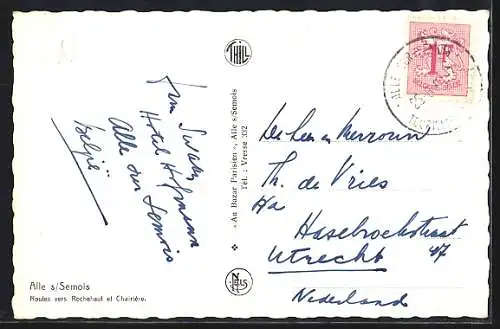 THILL
1F
ALLE
Hotel Hofmann
Alle sur Semois
België
« Au Bazar Parisien », Alle s/Semois
Tél. : Vresse 332
De Heer en Mevrouw
Th. de Vries
Haselrockstraat 47
Utrecht
Nederland
Alle s/Semois
Routes vers Rochehaut et Chairière.
NELS